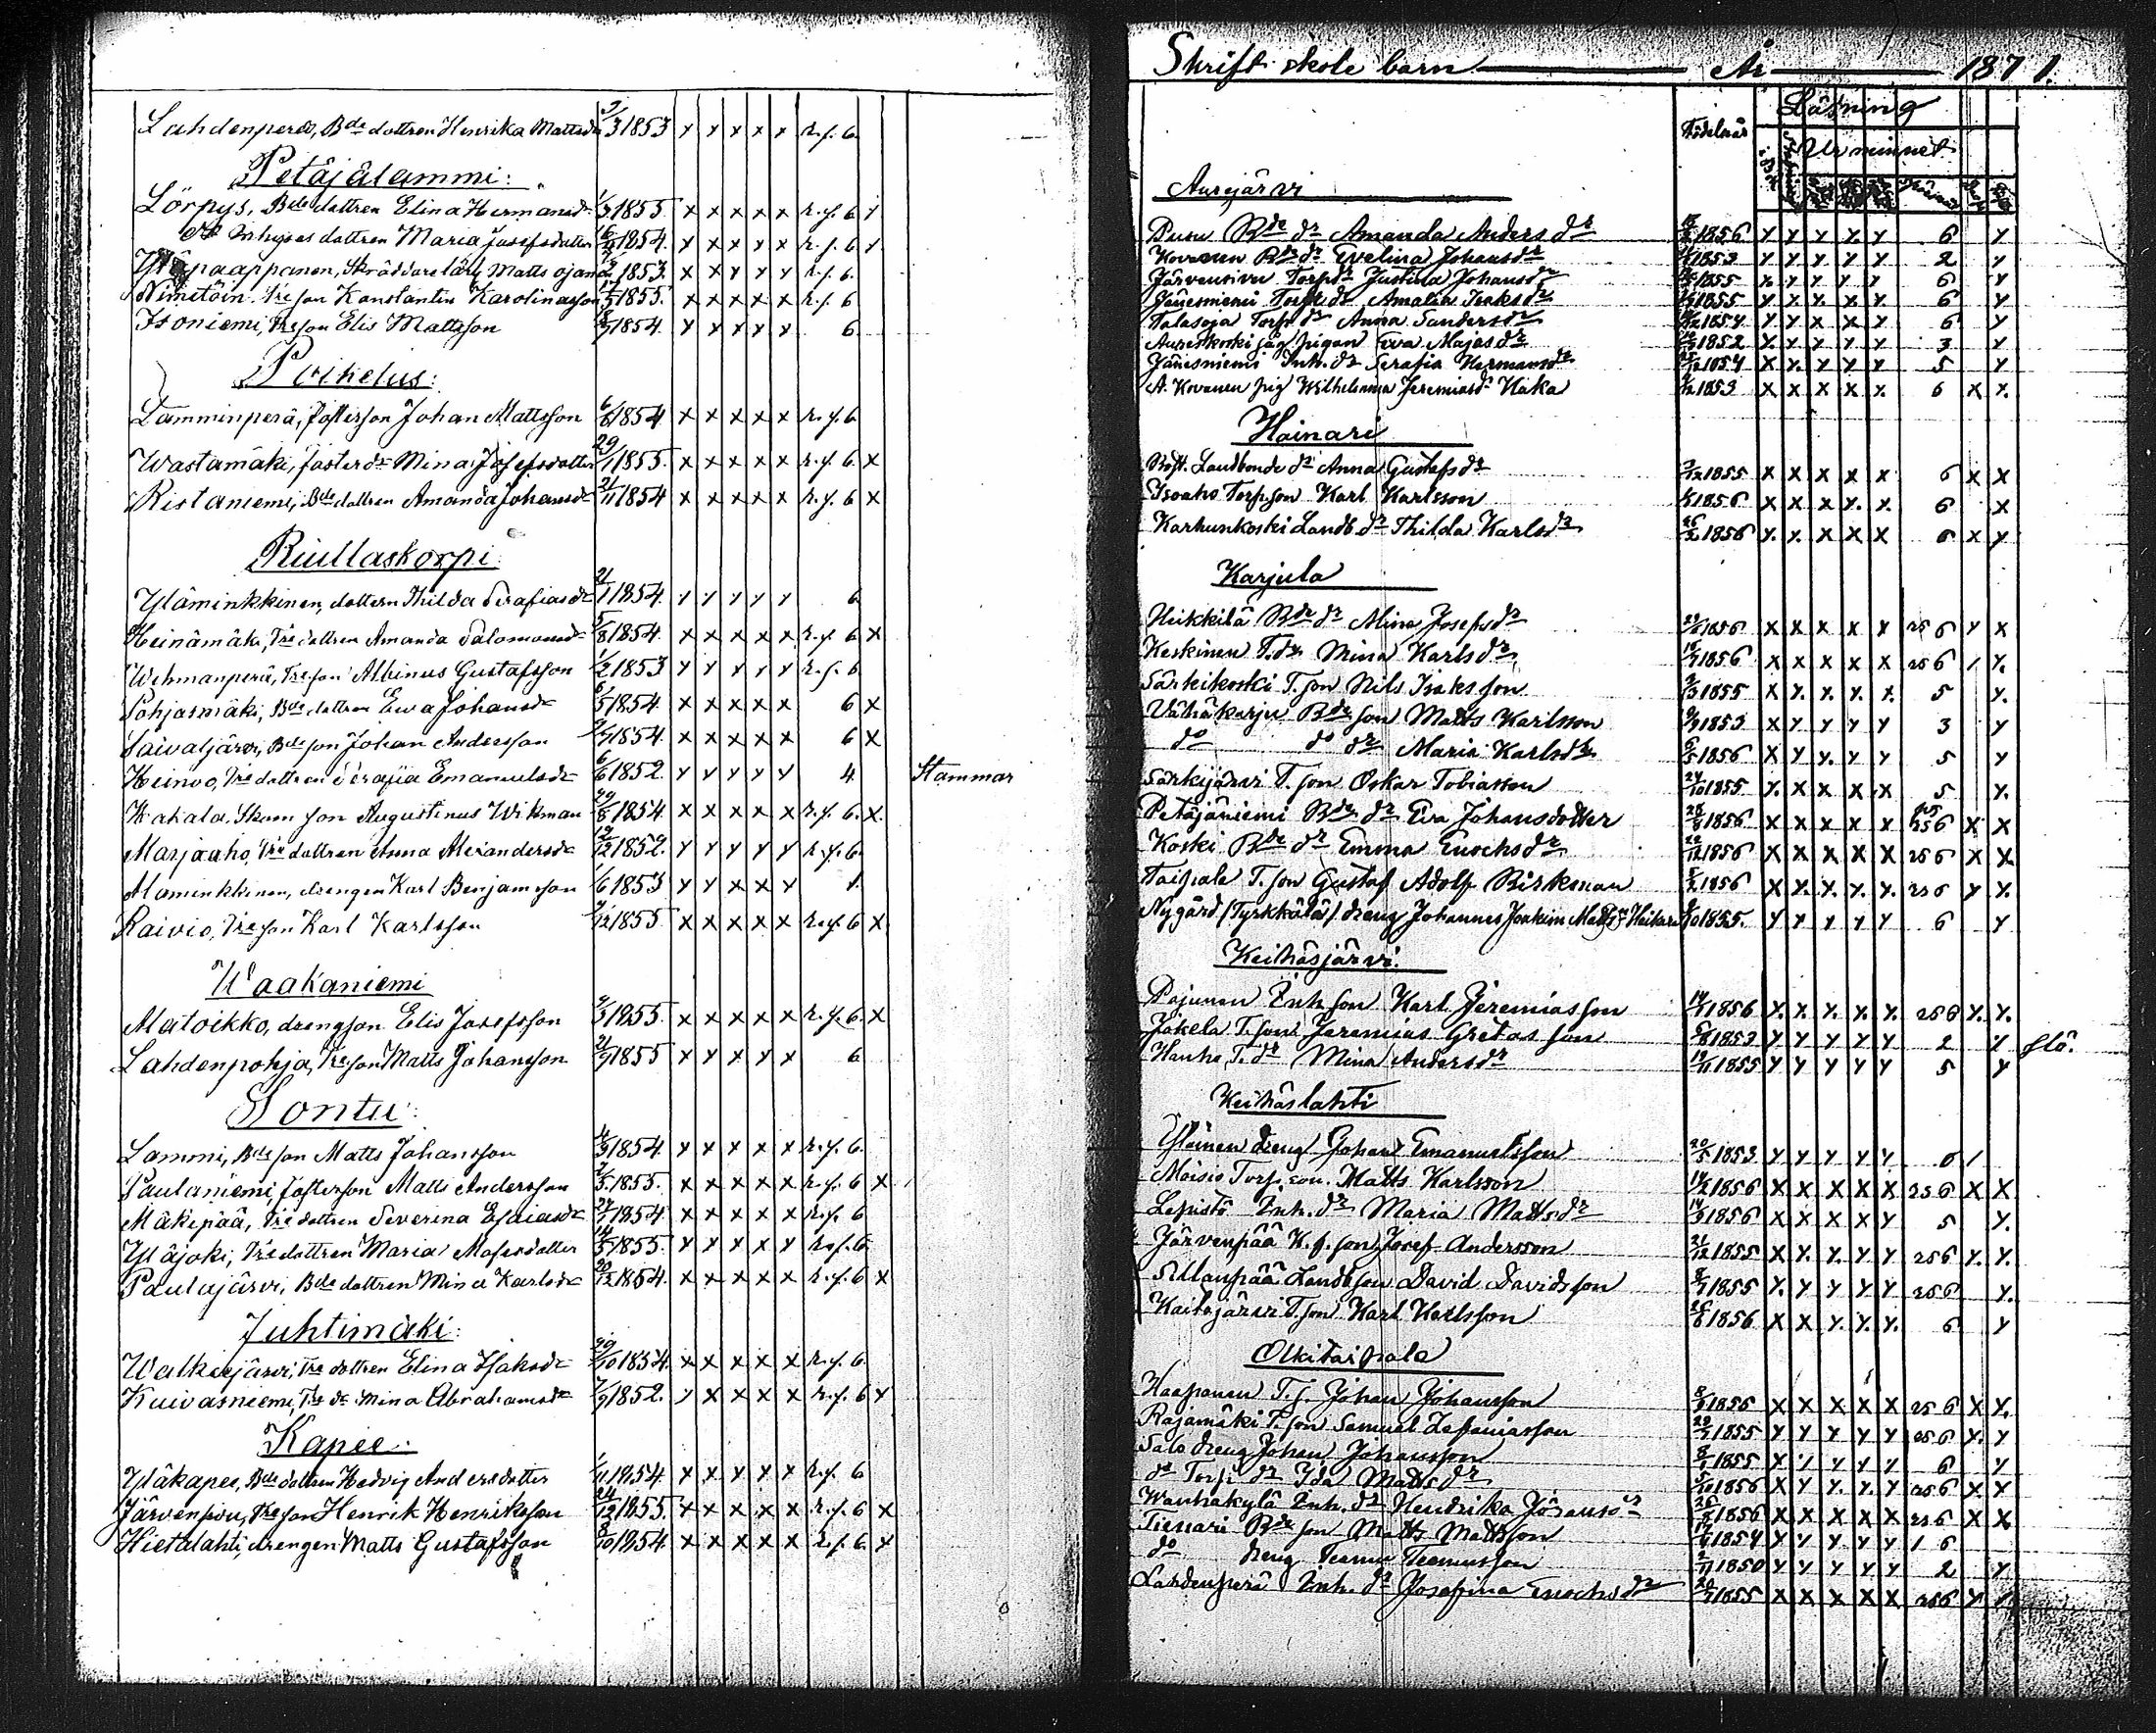 Lahdenperä, Bde dottren Henrika Mattsdr 3/3 1853 x x x x x r.f. 6.
Petäjälammi:
Lörpys, Bde dottren Elina Hermansdr 1/3 1855. x x x x x r.f. 6 x
dottren Maria Josefsdotter 1854. x x x x x r.f. 6 x
Yläpaappanen, Skräddare lärl. Matts 1853. x x x x x r.f. 6.
Nimetöin Tre son Konstantin Karolinasson 1855. x x x x x r.f. 6
Isoniemi, Tre son Elis Mattsson 1854. x x x x x 6.
Poikelus:
Lamminperä, Fosterson Johan Mattsson 6/8 1854. x x x x x r.f. 6
Wastamäki, fosterdr Mina Josefsdotter 29/1 1855. x x x x x r.f. 6. x
Ristaniemi, Bde dottren Amanda Johansdr 21/11 1854 x x x x x r.f. 6 x
Riuttaskorpi
Yläminkkinen, dottern Thilda Serafiasdr 21/1 1854. x x x x x 6.
Heinämäki, Tre dottren Amanda Salomonsdr 5/8 1854. x x x x x r.f. 6 x
Wehmanperä, Tre son Albinus Gustafsson 1/2 1853 x x x x x r.f. 6
Pohjasmäki, Bde dottren Ewa Johansdr 6/5 1854. x x x x x 6 x
Saivatjärvi, Bde son Johan Andersson 1854. x x x x x 6 x
Heinoo, Tre dottren Serafia Emanuelsdr 6/6 1852. x x x x x 4 Stammar
Kahala, Skom son Augustinus Wikman 29/8 1854. x x x x x r.f. 6. x.
Marjaaho, Tre dottren Anna Alexandersdr 12/12 1852. x x x x x r.f. 6.
Alaminkkinen, drengen Karl Benjamsson 1/6 1853 x x x x x 1.
Raivio, Tre son Karl Karlsson 1/12 1855 x x x x x r.f. 6 x
Waakaniemi
Matoikko, drengson Elis Josefsson 1855. x x x x x r.f. 6. x
Lahdenpohja, Tre son Matts Johansson 21/9 1855 x x x x x 6
Sontu:
Lammi, Bde son Matts Johansson 4/9 1854. x x x x x r.f. 6.
Paulaniemi, Fosterson Matts Andersson 2/5 1855. x x x x x r.f. 6 x
Mäkipää, Tre dottren Severina Esaiasdr 27/7 1854 x x x x x r.f. 6
Yläjoki, Tre dottren Maria Mosesdotter 14/5 1855. x x x x x r.f. 6
Paulajärvi, Bde dottren Mina Karlsdr 20/12 1854. x x x x x r.f. 6 x
Juhtimäki:
Walkiejärvi, Tre dottren Elina Isaksdr 29/10 1854. x x x x x r.f. 6
Kuivasniemi, Tre dr Mina Abrahamsdr 7/9 1852. x x x x x r.f. 6 x
Kapee:
Yläkapee, Bde dottren Hedvig Andersdotter 1/11 1854. x x x x x r.f. 6
Järvensivu, Tre son Henrik Henriksson 24/12 1855. x x x x x r.f. 6 x
Hietalahti, drengen Matts Gustafsson 8/10 1854. x x x x x r.f. 6 x
Skrift skole barn År 1871.
Födelseår Läsning
Ur minnet
Aurejärvi
Pusu Bde dr Amanda Anders dr 1856 x x x x x 6 x
Kovanen Bde dr Evelina Johansdr 1853 x x x x x 2 x
Järvensivu Torp dr Justina Johansdr 1855 x x x x x 6 x
Jänesniemi Torp dr Amalia Isaksdr 1855 x x x x x 6 x
Talasoja Torp dr Anna Sandersdr 1854 x x x x x 6 x
Aureskoski såg pigan Eva Majasdr 1852 x x x x x 3 x
Jänesniemi Inh. dr Serafia Hermansdr 1854 x x x x x 5 x
A. Kovanen pig Wilhelmina Jeremiasdr Kaka 1853 x x x x x 6 x x
Hainari
Landbonde dr Anna Gustafsdr 1855 x x x x x 6 x x
Isoaho Torpson Karl Karlsson 1856 x x x x x 6 x
Karhunkoski Landb dr Thilda Karlsdr 26/2 1856 x x x x x 6 x x
Karjula
Heikkilä Bde dr Mina Josefsdr 1856 x x x x x 256 x x
Keskinen T. dr Mina Karlsdr 1856 x x x x x 256 1 x
Särkikoski T. son Nils Isaksson 1855 x x x x x 5 x
Vähäkarju Bde son Matts Karlsson 1853 x x x x x 3 x
do do dr Maria Karlsdr 1856 x x x x x 5 x
Särkijärvi T. son Oskar Tobiasson 24/10 1855 x x x x x 5 x
Petäjäniemi Bde dr Eva Johansdotter 1856 x x x x x 256 x x
Koski Bde dr Emma Enochsdr 1856 x x x x x 256 x x
Taipale T. son Gustaf Adolf Birkman 1856 x x x x x 256 x x
Nygård /Tyrkkölä/ dreng Johannes Joakim Matts Heikura 1855. x x x x x 6 x
Keihäsjärvi
Pajunen Inh son Karl Jeremiasson 1856 x x x x x 256 x x
Jokela T. son Jeremias Gretas son 1853 x x x x x 2 x slö.
Hanho, T. dr Mina Andersdr 19/11 1855 x x x x x 5 x
Keihäslahti
Yläinen dreng Johan Emanuelsson 20/5 1853 x x x x x 6 1
Moisio Torp. son. Matts Karlsson 1856 x x x x x 256 x x
Lepistö Inh. dr Maria Mattsdr 1856 x x x x x 5 x
Järvenpää K. f. son Josef Andersson 21/12 1855 x x x x x 256 x x
Sillanpää Landb son David Davidsson 1855 x x x x x 256 x
Kaitojärvi T. son Karl Karlsson 1856 x x x x x 6 x
Olkitaipale
Haaponen T. s. Johan Johansson 1856 x x x x x 256 x x
Rajamäki T. son Samuel Zefaniasson 1855 x x x x x 256 x x
Salo dreng Johan Johansson 1855 x x x x x 6 x
do Torp dr Ida Mattsdr 1856 x x x x x 256 x x
Wanhakylä Inh. dr Hendrika Johansdr 1856 x x x x x 256 x x
Tienari Bde son Matts Mattsson 1854 x x x x x 1 6
do dreng 1850 x x x x x 2 x
Lahdenperä Inh. dr Josefina Enochsdr 1855 x x x x x 256 x